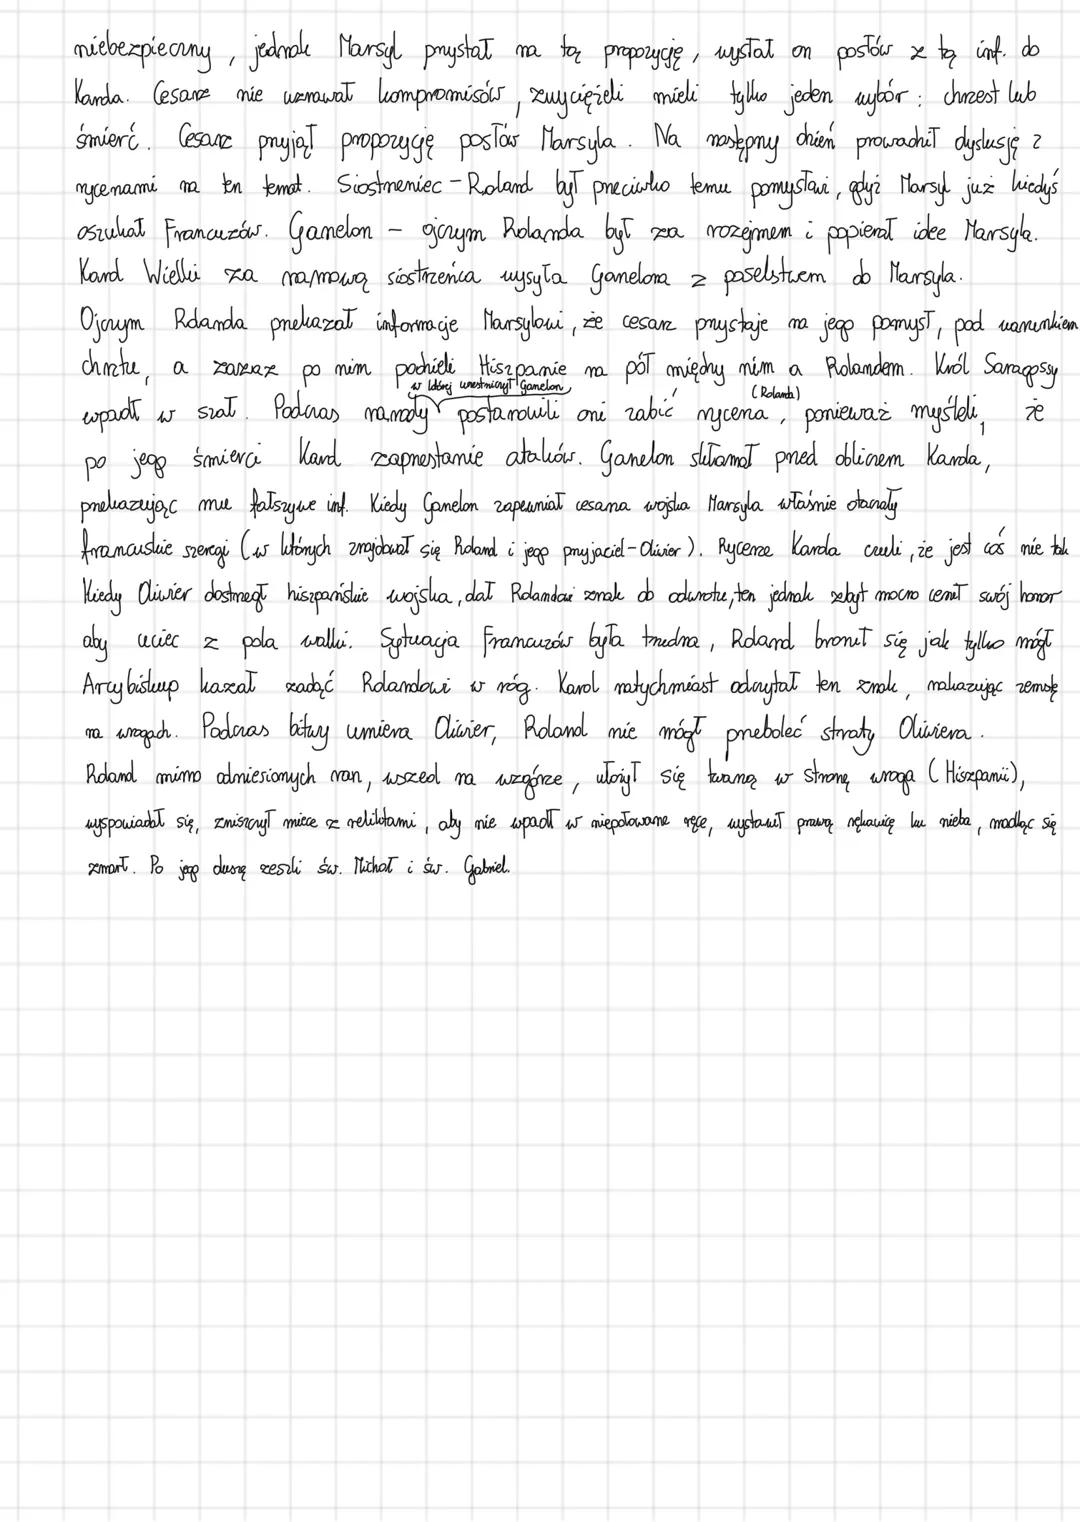 niebezpieczny, jednak Marsyl przystał na tą propozycję, wysłał on posłów z tą inf. do
Karola. Cesarz nie uznawał kompromisów, zwyciężeli mieli tylko jeden wybór: chrzest lub
śmierć. Cesarz przyjął propozycję posłów Marsyla. Na następny dzień prowadził dyskusję z
rycerzami na ten temat. Siostrzeniec - Roland był przeciwko temu pomysłowi, gdyż Marsyl już kiedyś
oszukał Francuzów. Ganelon - ojczym Rolanda był za rozejmem i popierał idee Marsyla.
Karol Wielki za namową siostrzeńca wysyła Ganelona z poselstwem do Marsyla.
Ojczym Rolanda przekazał informacje Marsylowi, że cesarz przystaje na jego pomysł, pod warunkiem
chrztu, a zaraz po nim podzieli Hiszpanie na pół między nim a Rolandem. Król Saragossy
w której uczestniczył Ganelon, (Rolanda)
wpadł w szał. Podczas narady postanowili oni zabić rycerza, ponieważ myśleli, że
po jego śmierci Karol zaprzestanie ataków. Ganelon skłamał przed obliczem Karola,
przekazując mu fałszywe inf. Kiedy Ganelon zapewniał cesarza wojska Marsyla właśnie otaczały
francuskie szeregi (w których znajdował się Roland i jego przyjaciel - Oliwier). Rycerze Karola czuli, że jest coś nie tak
Kiedy Oliwier dostrzegł hiszpańskie wojska, dał Rolandowi znak do odwrotu, ten jednak zbyt mocno cenił swój honor
aby uciec z pola walki. Sytuacja Francuzów była trudna, Roland bronił się jak tylko mógł
Arcybiskup kazał zadąć Rolandowi w róg. Karol natychmiast odczytał ten znak, nakazując zemstę
na wrogach. Podczas bitwy umiera Oliwier, Roland nie mógł przeboleć straty Oliwiera.
Roland mimo odniesionych ran, wszedł na wzgórze, ułożył się twarzą w stronę wroga (Hiszpanii),
wyspowiadał się, zniszczył miecz z relikwiami, aby nie wpadł w niepołowane ręce, wystawił prawą rękawicę ku nieba, modląc się
zmarł. Po jego duszę zeszli św. Michał i św. Gabriel.